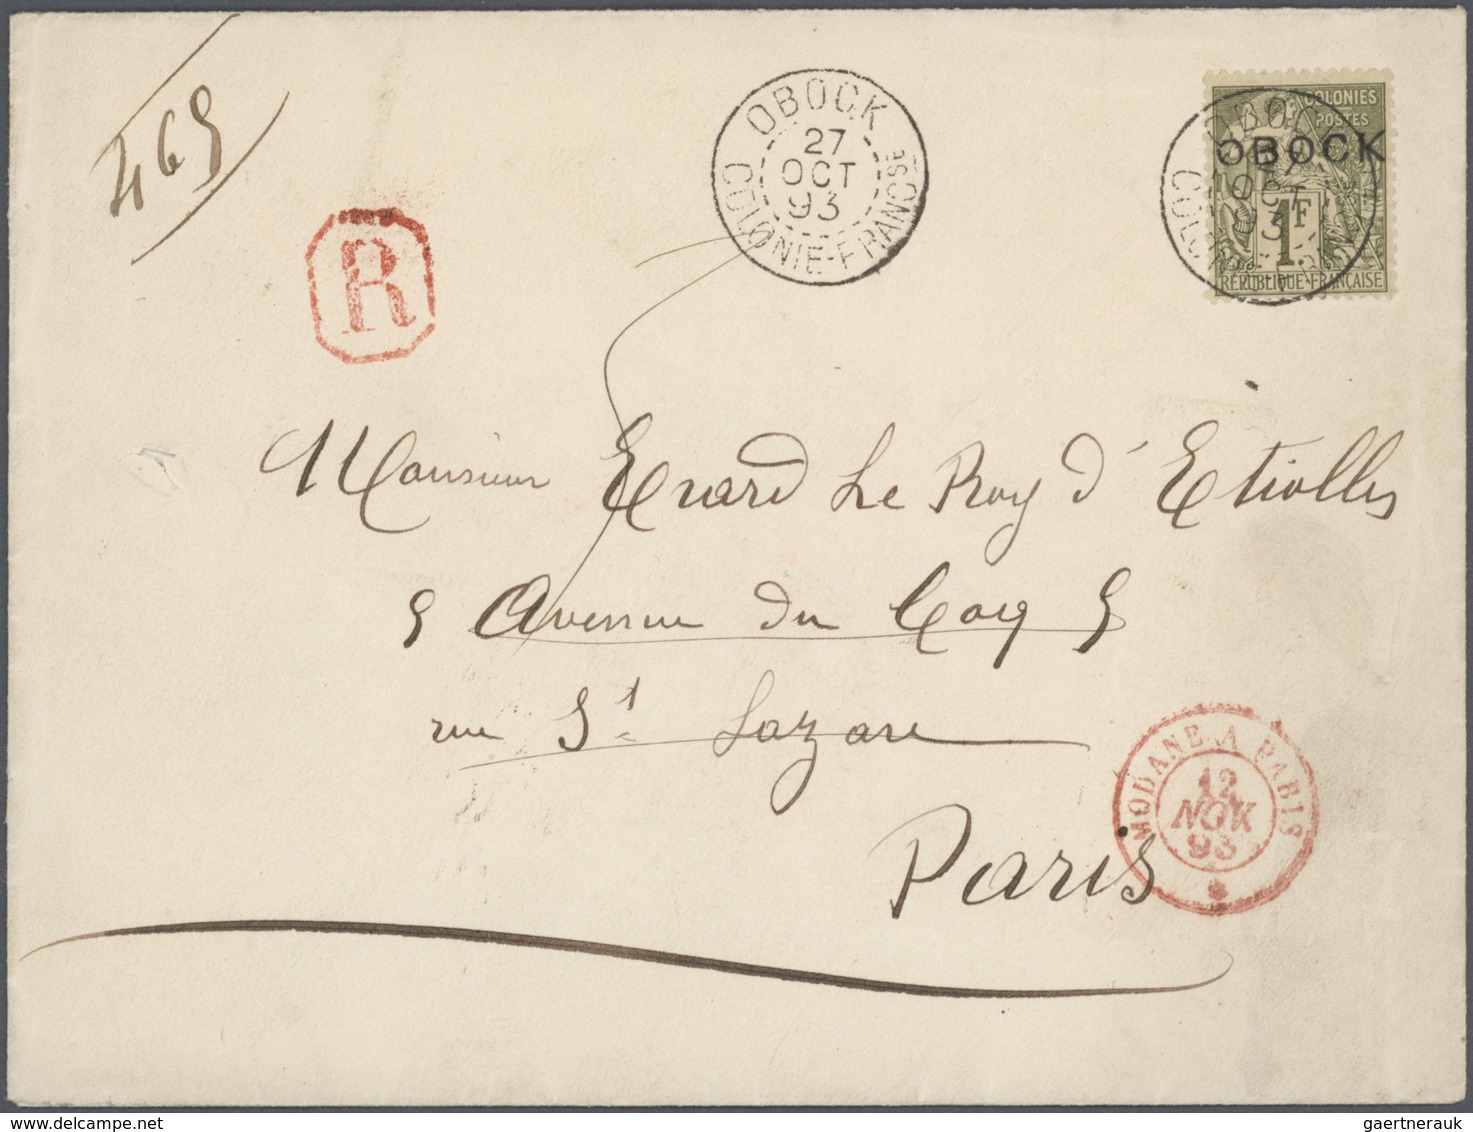 469
R
OBOCK
27
OCT
93
COLONIE-FRANCSE
COLONIES
POSTES
OBOCK
1F
RÉPUBLIQUE FRANÇAISE
OBOCK
27
OCT
93
Monsieur Erard Le Roy d'Etiolles
9 Avenue du Coq 9
rue St Lazare
Paris
MODANE A PARIS
12
NOV
93
gaertnerauk @ delcampe.net